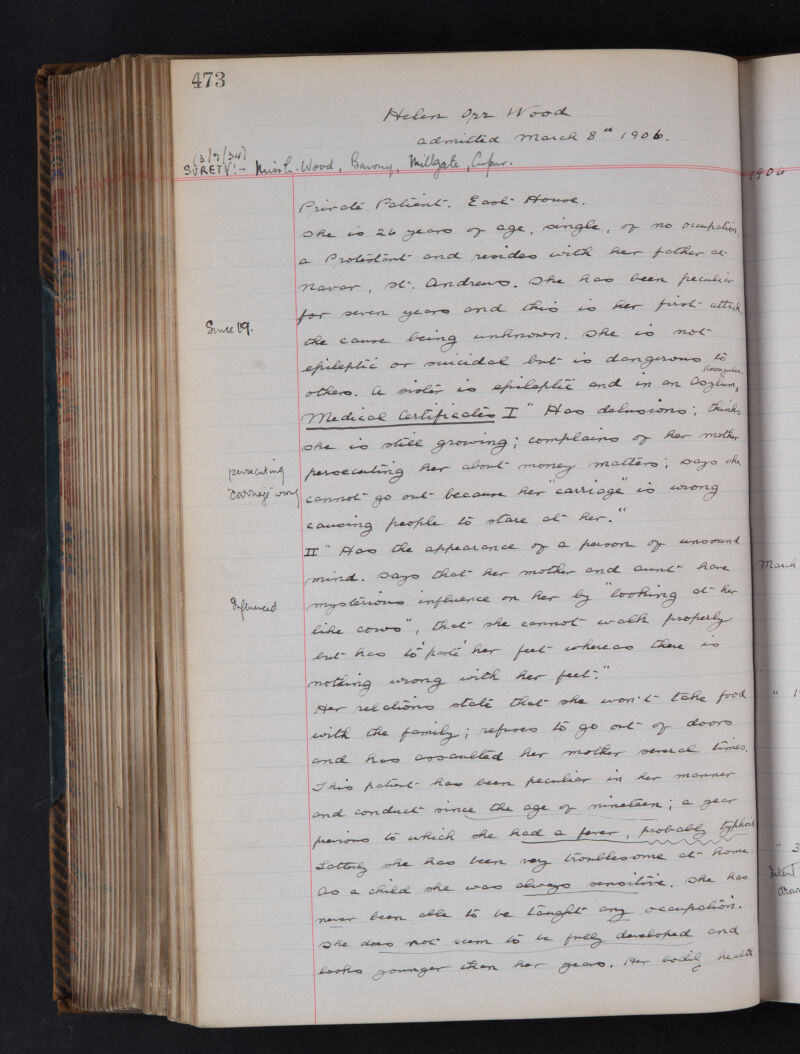 473
Helen Orr Wood
admitted March 8th 1906.
(3/7/34)
SURETY:- Miss L. Wood, Barony, Millgate, Cupar.
1906
Private Patient. East House.
She is 26 years of age, single, of no occupation,
a Protestant and resides with her father at
Navar, St. Andrews. She has been peculiar
for seven years and this is her first attack,
Since 19.
the cause being unknown. She is not
epileptic or suicidal but is dangerous to
others. A sister is epileptic and in an Asylum,
Medical Certificates I "Has delusions; thinks
she is still growing; complains of her mother
persecuting
"carriage" wrong
persecuting her about money matters; says she
cannot go out because her "carriage" is wrong
causing people to stare at her."
II "Has the appearance of a person of unsound
mind. Says that her mother and aunt have
March
Influenced
mysterious influence on her by "looking at her
like cows", that she cannot walk properly
but has to 'paste' her feet whereas there is
nothing wrong with her feet."
Her relations state that she won't take food
with the family; refuses to go out of doors
and has assaulted her mother several times.
This patient has been peculiar in her manner
and conduct since the age of nineteen; a year
previous to which she had a fever, probably typhoid
Latterly she has been very troublesome at home.
" 3
As a child she was always sensitive. She has
never been able to be taught any occupation.
She does not seem to be fully developed and
looks younger than her years. Her bodily health